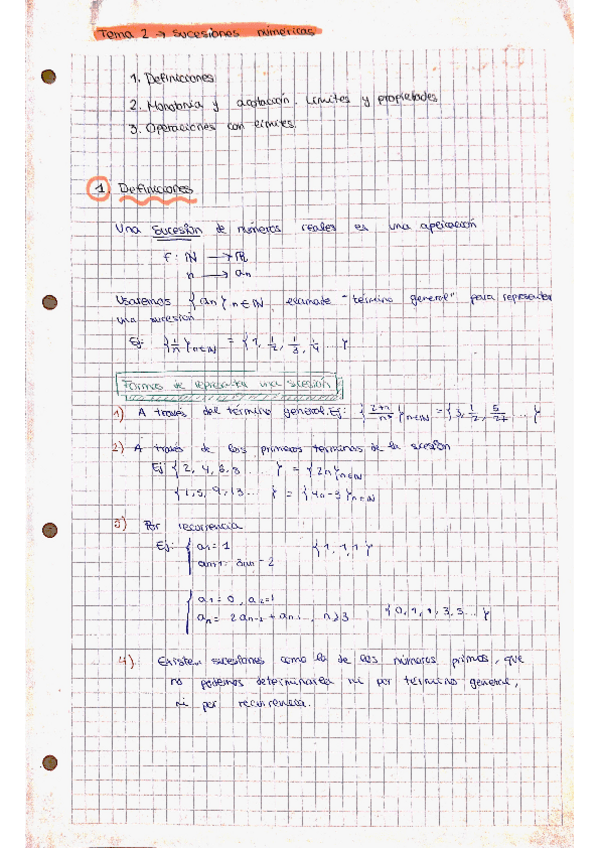 Tema 2 → Sucesiones numéricas
1. Definiciones
2. Monotonía y acotación. Límites y propiedades
3. Operaciones con límites.
1. Definiciones
Una sucesión de números reales es una aplicación
f: ℕ → ℝ
n → an
Usaremos {an}n∈ℕ, llamado "término general" para representar
una sucesión
Ej: {1/n}n∈ℕ = {1, 1/2, 1/3, 1/4 ... }
Formas de representar una sucesión
1) A través del término general. Ej: {2+n/n³}n∈ℕ = {3, 1/2, 5/27 ... }
2) A través de los primeros términos de la sucesión
Ej {2, 4, 6, 8 ... } = {2n}n∈ℕ
{1, 5, 9, 13 ... } = {4n-3}n∈ℕ
3) Por recurrencia
Ej: { a1 = 1 {1, 1, 1}
an+1 = 3an - 2
{ a1 = 0, a2 = 1
an = 2an-2 + an-1, n≥3 {0, 1, 1, 3, 5 ... }
4) Existen sucesiones como la de los números primos, que
no podemos determinarla ni por término general,
ni por recurrencia.